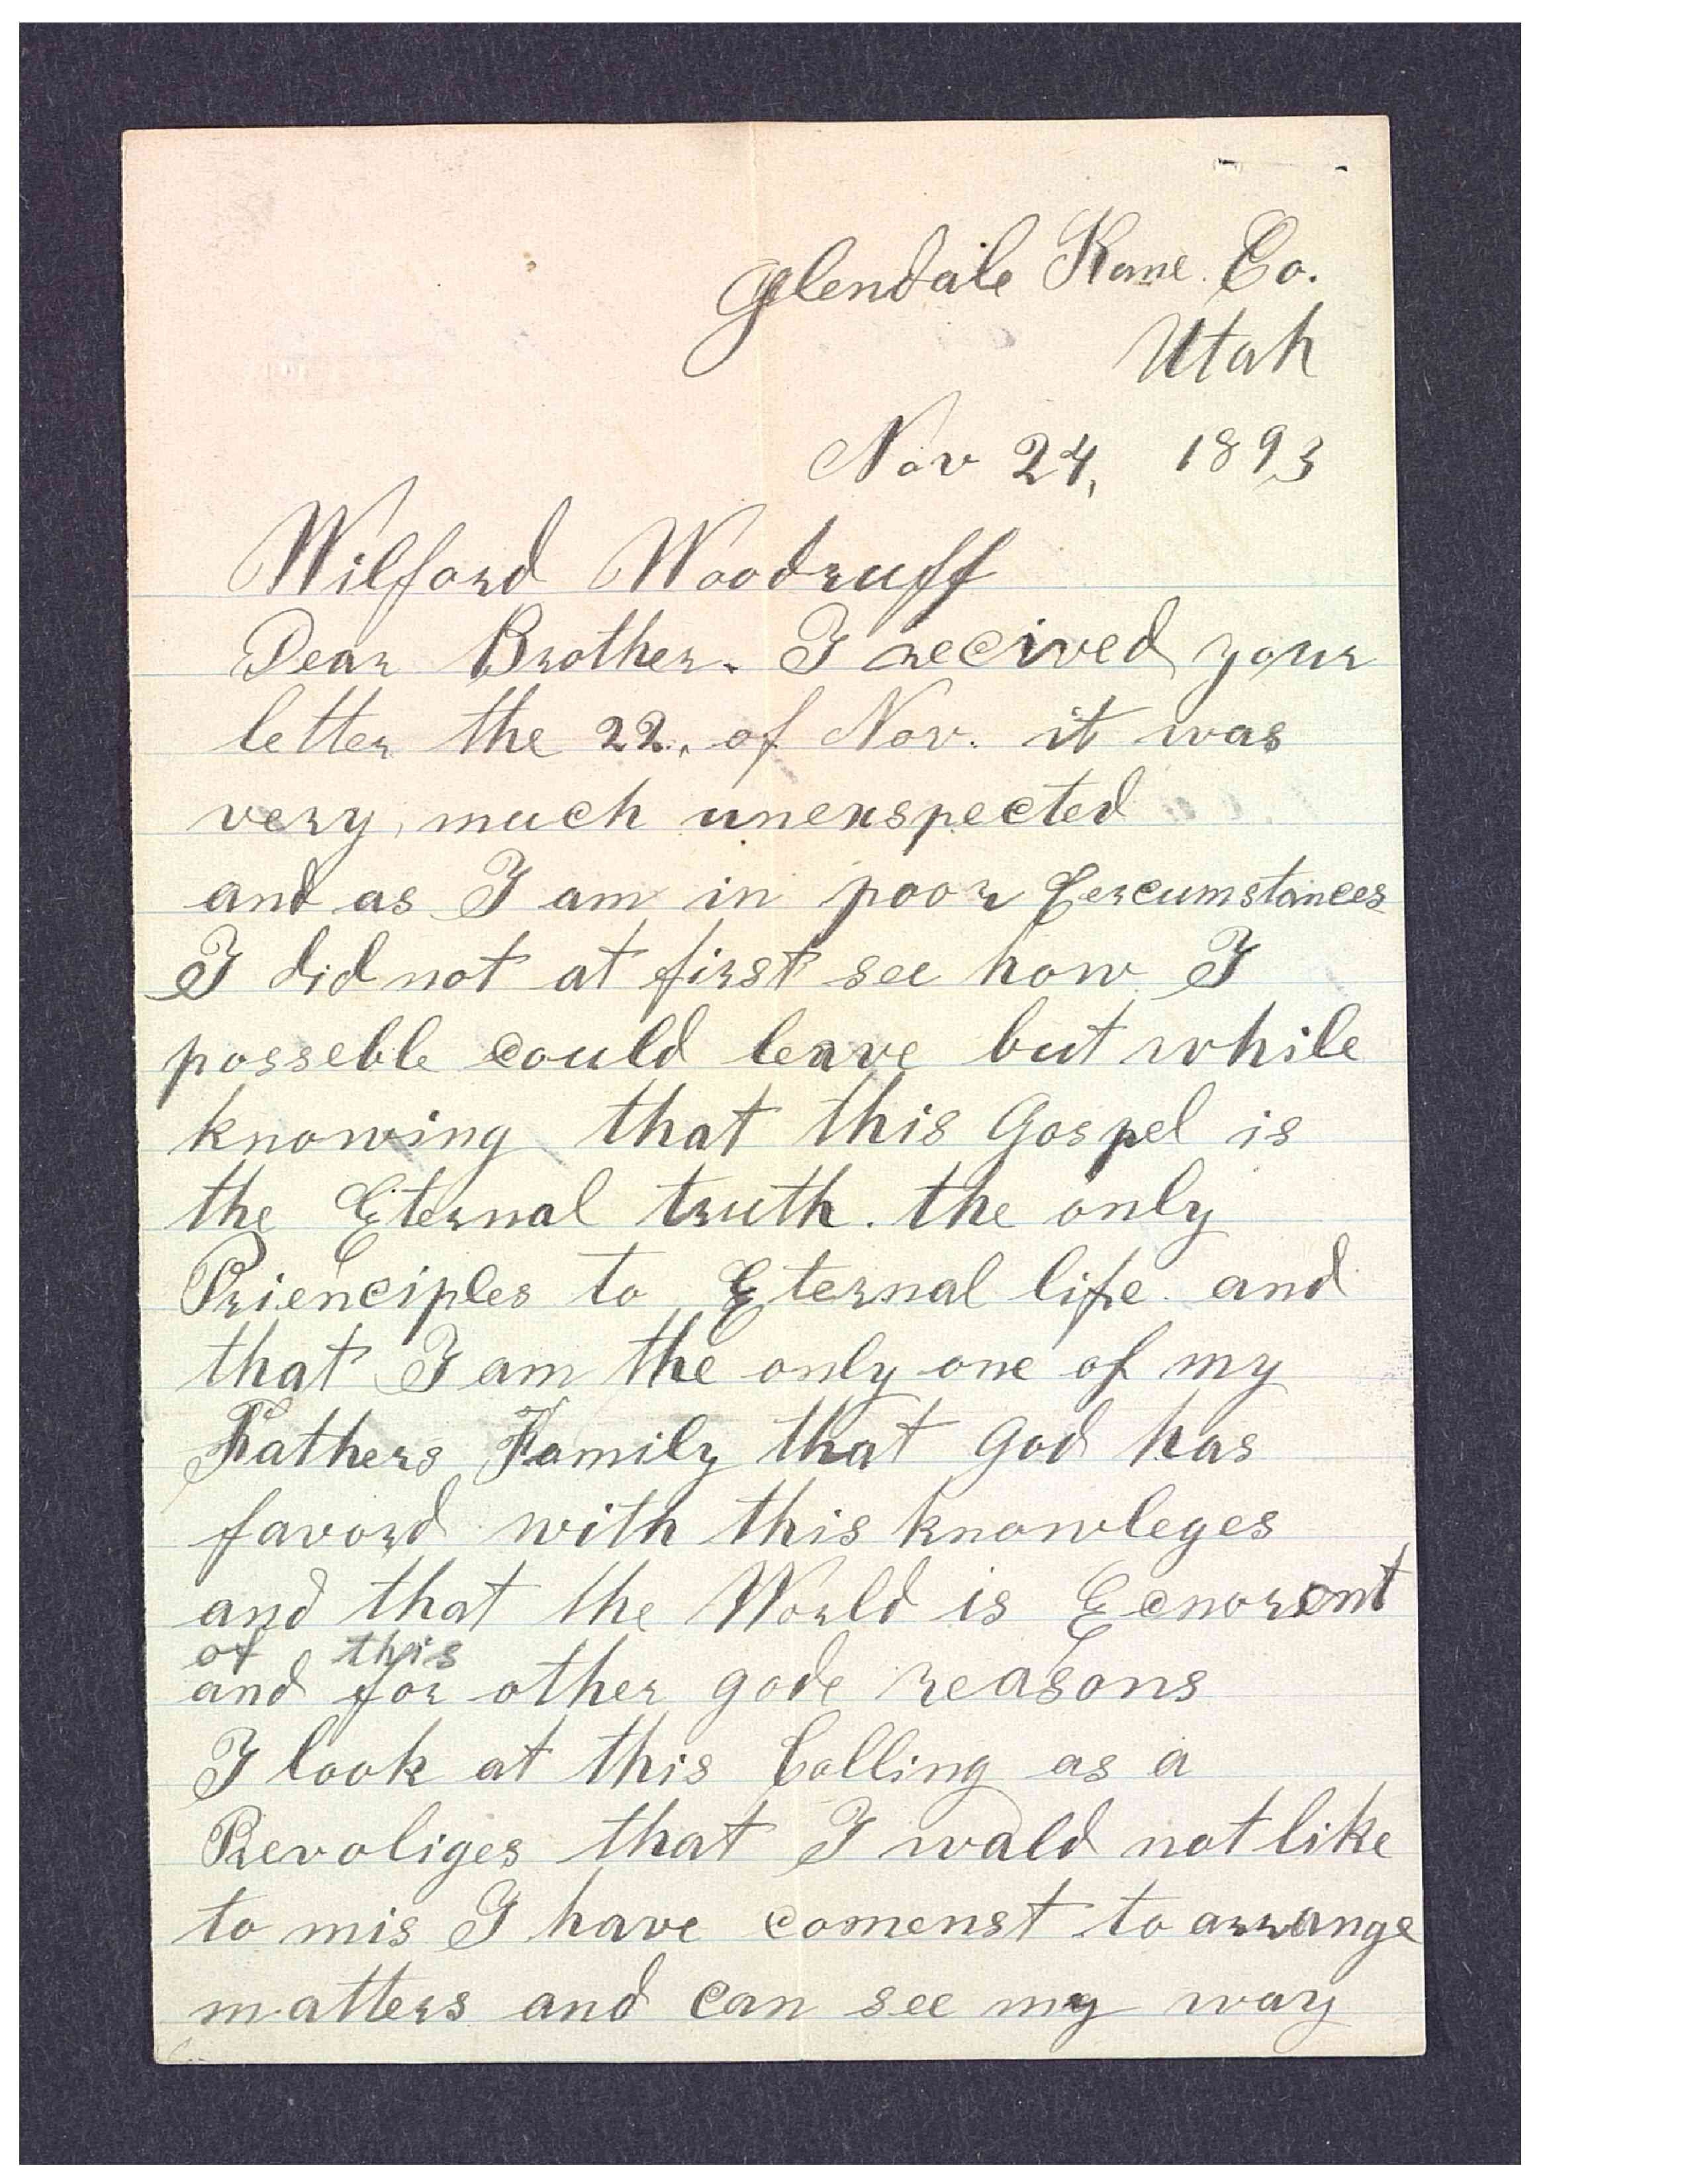 Glendale Kane. Co.
Utah
Nov 24, 1893
Wilford Woodruff
Dear Brother. I recived your
letter the 22. of Nov. it was
very much unexspected
and as I am in poor Cercumstances
I did not at first see how I
posseble could leave but while
knowing that this Gospel is
the Eternal truth. the only
Prienciples to Eternal life and
that I am the only one of my
Fathers Family that God has
favord with this knowleges
and that the World is Eenorent
of this
and for other gode reasons
I look at this Calling as a
Prevoliges that I wald not like
to mis I have comenst to arrange
matters and can see my way